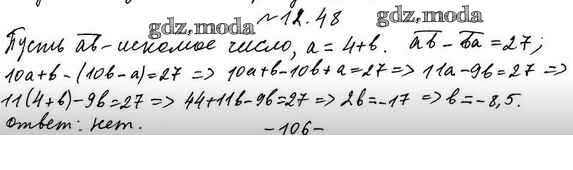 gdz.moda №12.48 gdz.moda
Пусть ab - искомое число, a = 4+b. ab - ba = 27;
10a+b-(10b-a)=27 => 10a+b-10b+a=27 => 11a-9b=27 =>
11(4+b)-9b=27 => 44+11b-9b=27 => 2b=-17 => b=-8,5.
Ответ: нет.
-106-